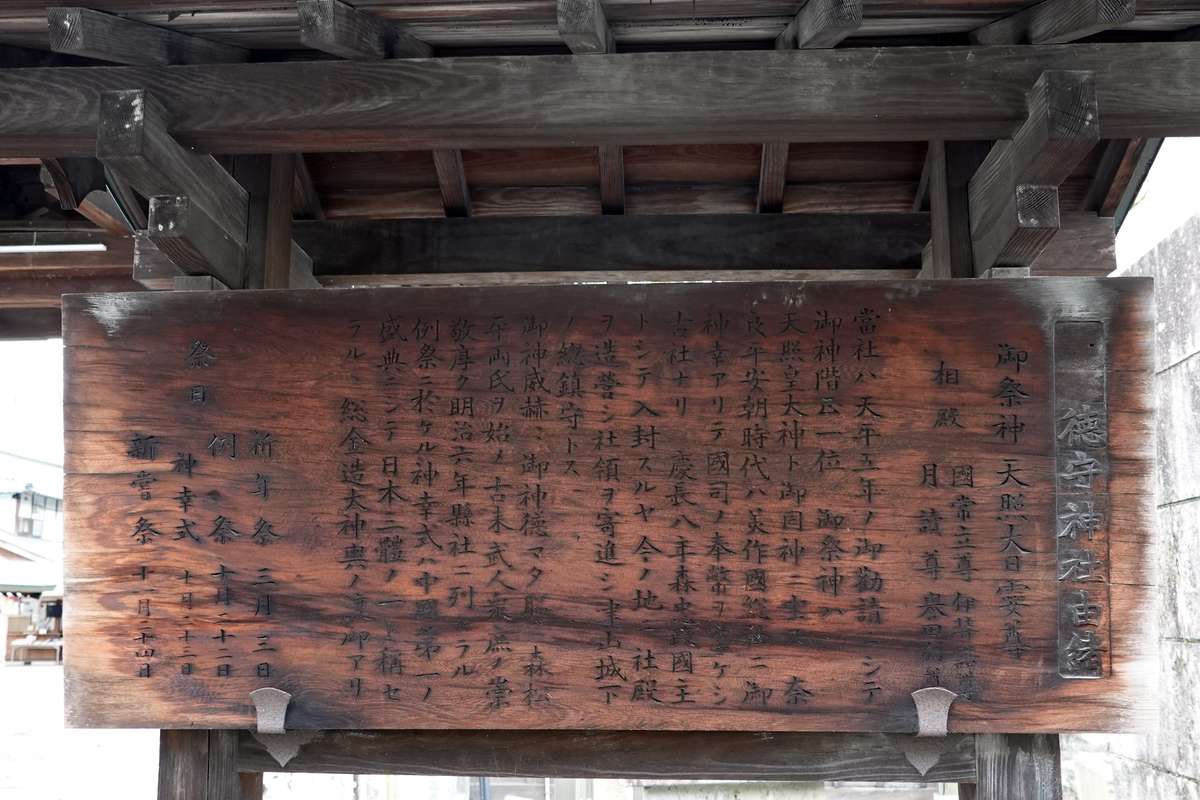 德守神社由緒
御祭神 天照大日孁尊
國常立尊
相殿
月讀尊 譽田別尊
當社ハ天平五年ノ御勸請ニシテ
御神階正一位 御祭神ハ
天照皇大神ト御同神ニ 奈
良平安朝時代ハ美作國總社ニ御
神幸アリテ國司ノ奉幣ヲ ケシ
古社ナリ 慶長八年森忠政國主
トシテ入封スルヤ今ノ地ニ社殿
ヲ造營シ社領ヲ寄進シ津山城下
ノ總鎮守トス
御神威赫々御神德マタ 森松
平両氏ヲ始メ古来武人衆庶ノ崇
敬厚ク明治六年縣社ニ列セラル
例祭ニ於ケル神幸式ハ中國第一ノ
盛典ニシテ日本三體ノ一ト稱セ
ラル々總金造大神輿ノ渡御アリ
祭日
祈年祭 三月三日
例祭 十月二十二日
神幸式 十月二十三日
新嘗祭 十一月二十四日